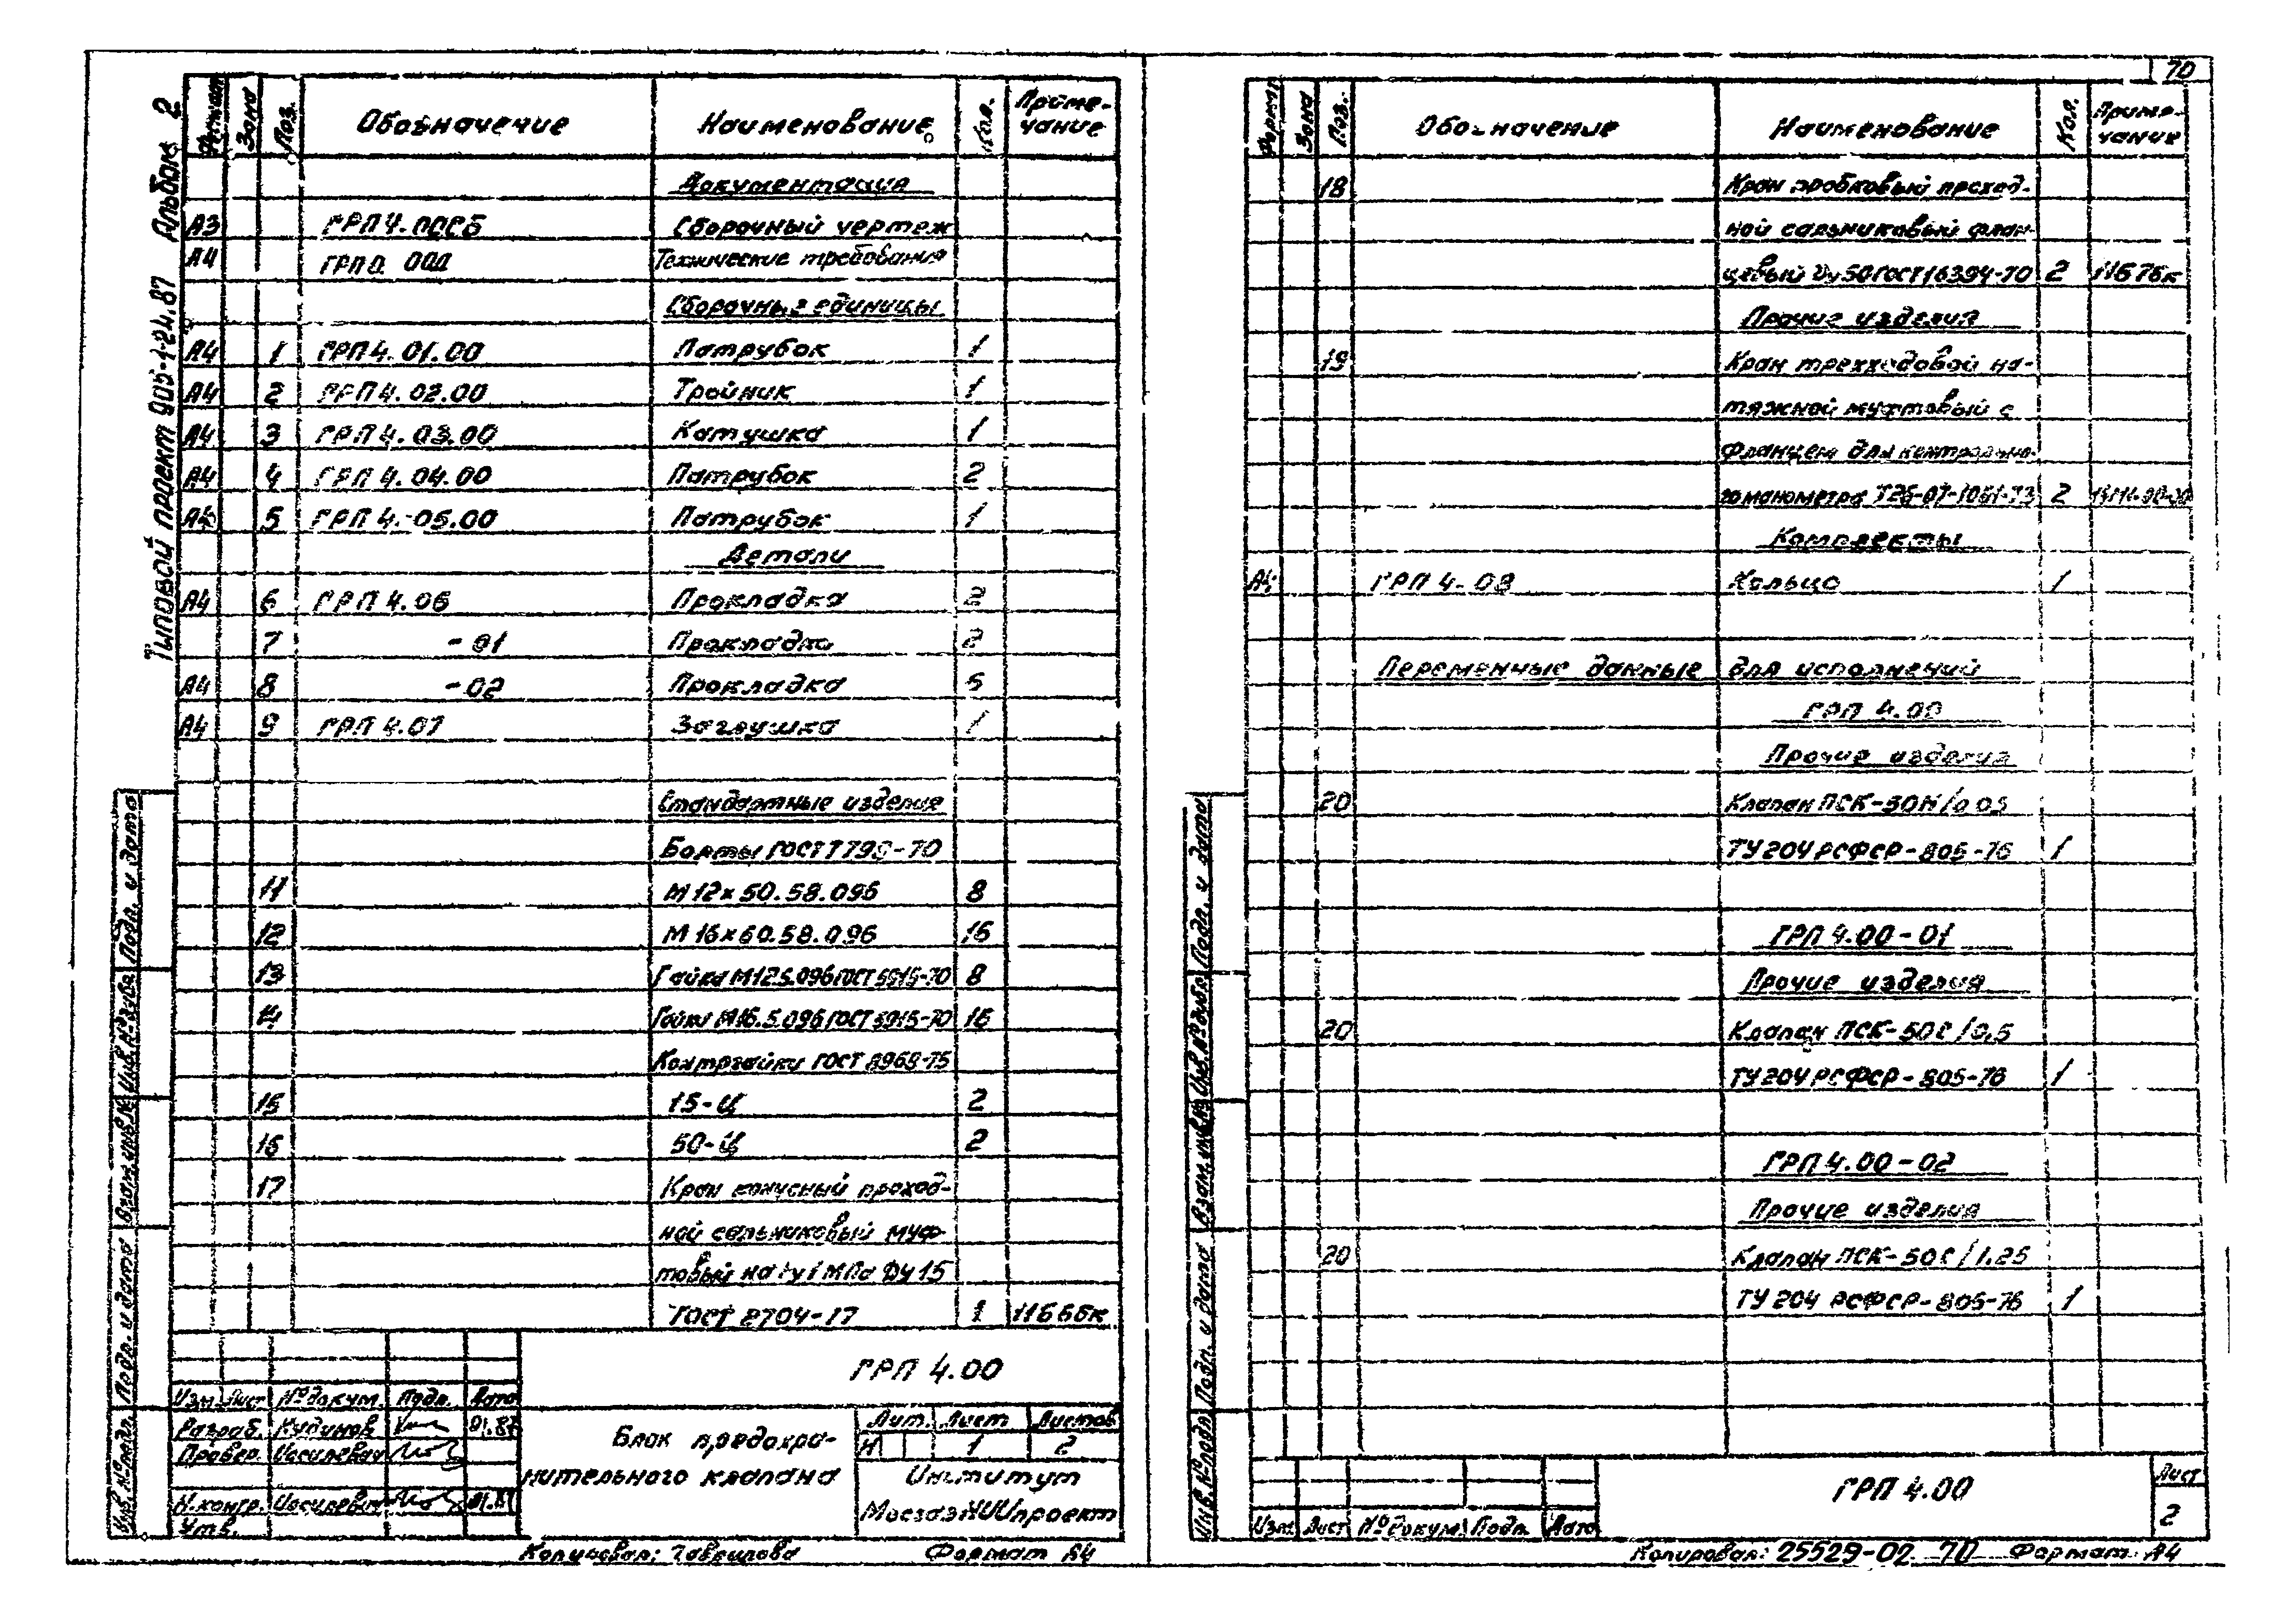 Типовой проект 905-1-24.87 Альбом 2
Формат Зона Поз. Обозначение Наименование Кол. Приме-
чание
Документация
А3 ГРП 4.00СБ Сборочный чертеж
А4 ГРП 0.00Д Технические требования
Сборочные единицы
А4 1 ГРП 4.01.00 Патрубок 1
А4 2 ГРП 4.02.00 Тройник 1
А4 3 ГРП 4.03.00 Катушка 1
А4 4 ГРП 4.04.00 Патрубок 2
А4 5 ГРП 4.05.00 Патрубок 1
Детали
А4 6 ГРП 4.06 Прокладка 2
7 -01 Прокладка 2
А4 8 -02 Прокладка
А4 9 ГРП 4.07 Заглушка 1
Стандартные изделия
Болты ГОСТ 7798-70
11 М12×50.58.096 8
12 М16×60.58.096 16
13 Гайка М12.5.096 ГОСТ 5915-70 8
14 Гайка М16.5.096 ГОСТ 5915-70 16
Контргайки ГОСТ 8968-75
15 15-Ц 2
16 50-Ц 2
17 Кран конусный проход-
ной сальниковый муф-
товый на Ру 1 МПа Ду 15
ГОСТ 2704-77 1 11Б6бк
ГРП 4.00
Изм. Лист № докум. Подп. Дата
Разраб. Кудинов 01.87
Провер. Иосилевич
Н.контр. Иосилевич 01.87
Утв.
Блок предохра-
нительного клапана
Лит. Лист Листов
И 1 2
Институт
МосгазНИИпроект
Копировал: Гаврилова Формат А4
Инв. № подл. Подп. и дата Взам. инв. № Инв. № дубл. Подп. и дата
70
Формат Зона Поз. Обозначение Наименование Кол. Приме-
чание
18 Кран пробковый проход-
ной сальниковый флан-
цевый Ду 50 ГОСТ 16394-70 2 11Б7бк
Прочие изделия
19 Кран трехходовой на-
тяжной муфтовый с
фланцем для контрольно-
го манометра 2
Комплекты
А4 ГРП 4.08 Кольцо 1
Переменные данные для исполнений
ГРП 4.00
Прочие изделия
20 Клапан ПСК-50Н/0.05
ТУ 204 РСФСР-805-76 1
ГРП 4.00-01
Прочие изделия
20 Клапан ПСК-50С/0,5
ТУ 204 РСФСР-805-76 1
ГРП 4.00-02
Прочие изделия
20 Клапан ПСК-50С/1.25
ТУ 204 РСФСР-805-76 1
ГРП 4.00
Лист
2
Изм. Лист № докум. Подп. Дата
Копировал: 25529-02 70 Формат А4
Инв. № подл. Подп. и дата Взам. инв. № Инв. № дубл. Подп. и дата